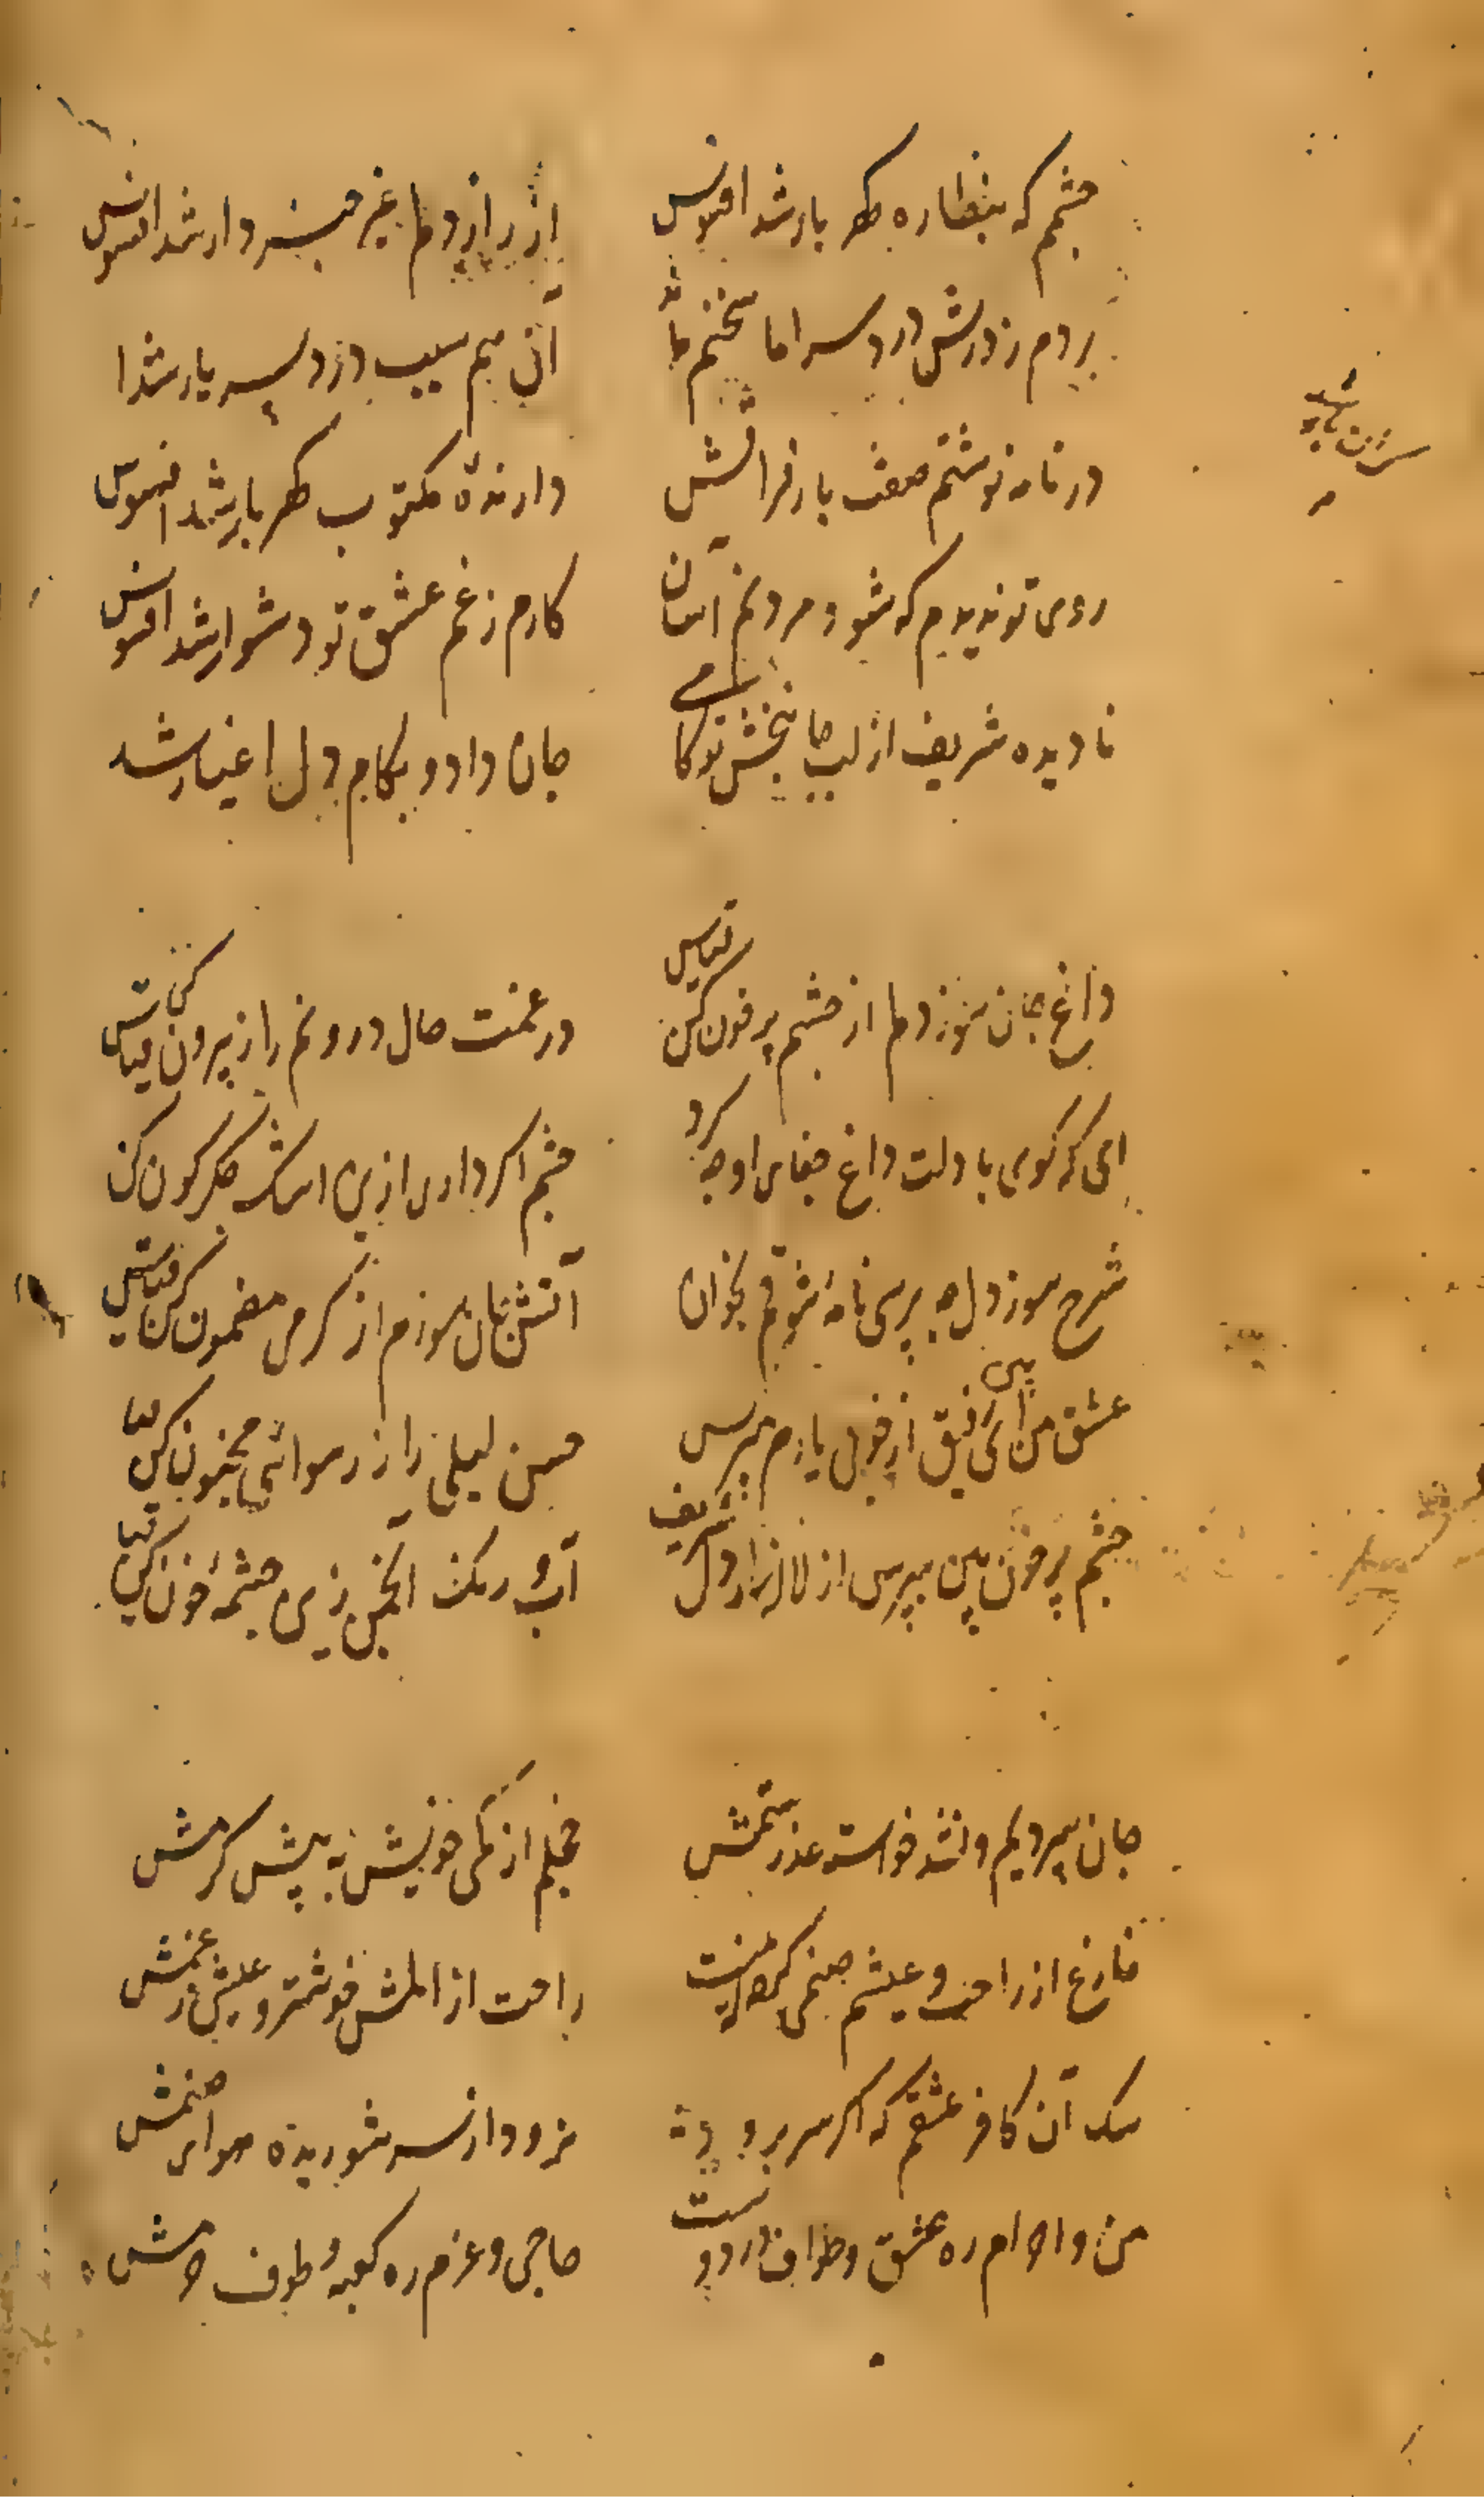 چشمم که بنظاره کهر بار شد افسوس
از راز دلم غیر خبردار شد افسوس
بردم ز درش درد سر اما سخنم ماند
آن هم سبب درد سر یار شد ا
در نامه نوشتم صفت بار فراقش
دارندهٔ مکتوب کهر بار شد افسوس
روی تو ندیدم که شود مردنم آسان
کارم ز غم عشق تو دشوار شد افسوس
نادیده شریف از لب جانبخش تو کامی
جان داد و بکام دل اغیار شد
داغ جان سوز دلم از چشم پر خون کن قیاس
در غمت حال درونم را ز بیرون کن قیاس
ای که کوی با دلت داغ جفای او چه کرد
چشم اکر داری ازین اشک جکر کون کن
شرح سوز دل چه پرسی نامهٔ شوقم بخوان
آتش پنهان سوزم از کرمی مضمون کن قیاس
عشق من بین ای رفیق از خوبی یارم مپرس
حسن لیلی را ز رسوائی مجنون کن قیا
چشم پر خون بین مپرس از لاله زار دل شریف
آب و رنک انجمن زین چشمهٔ خون کن قیا
جان سپردیم و نشد خواسته عذر ستمش
خجلم از کمی خویش به پیش کرمش
فارغ از راحت و عیشم صنمی کرد
راحت از المش خوشتر و عیش از غمش
سک آن کافر عشقم که اکر سر برود
نرود از سر شوریده هوای صنمش
من و احرام ره عشق و طواف در دوست
حاجی و عزم ره کعبه و طوف حرمش